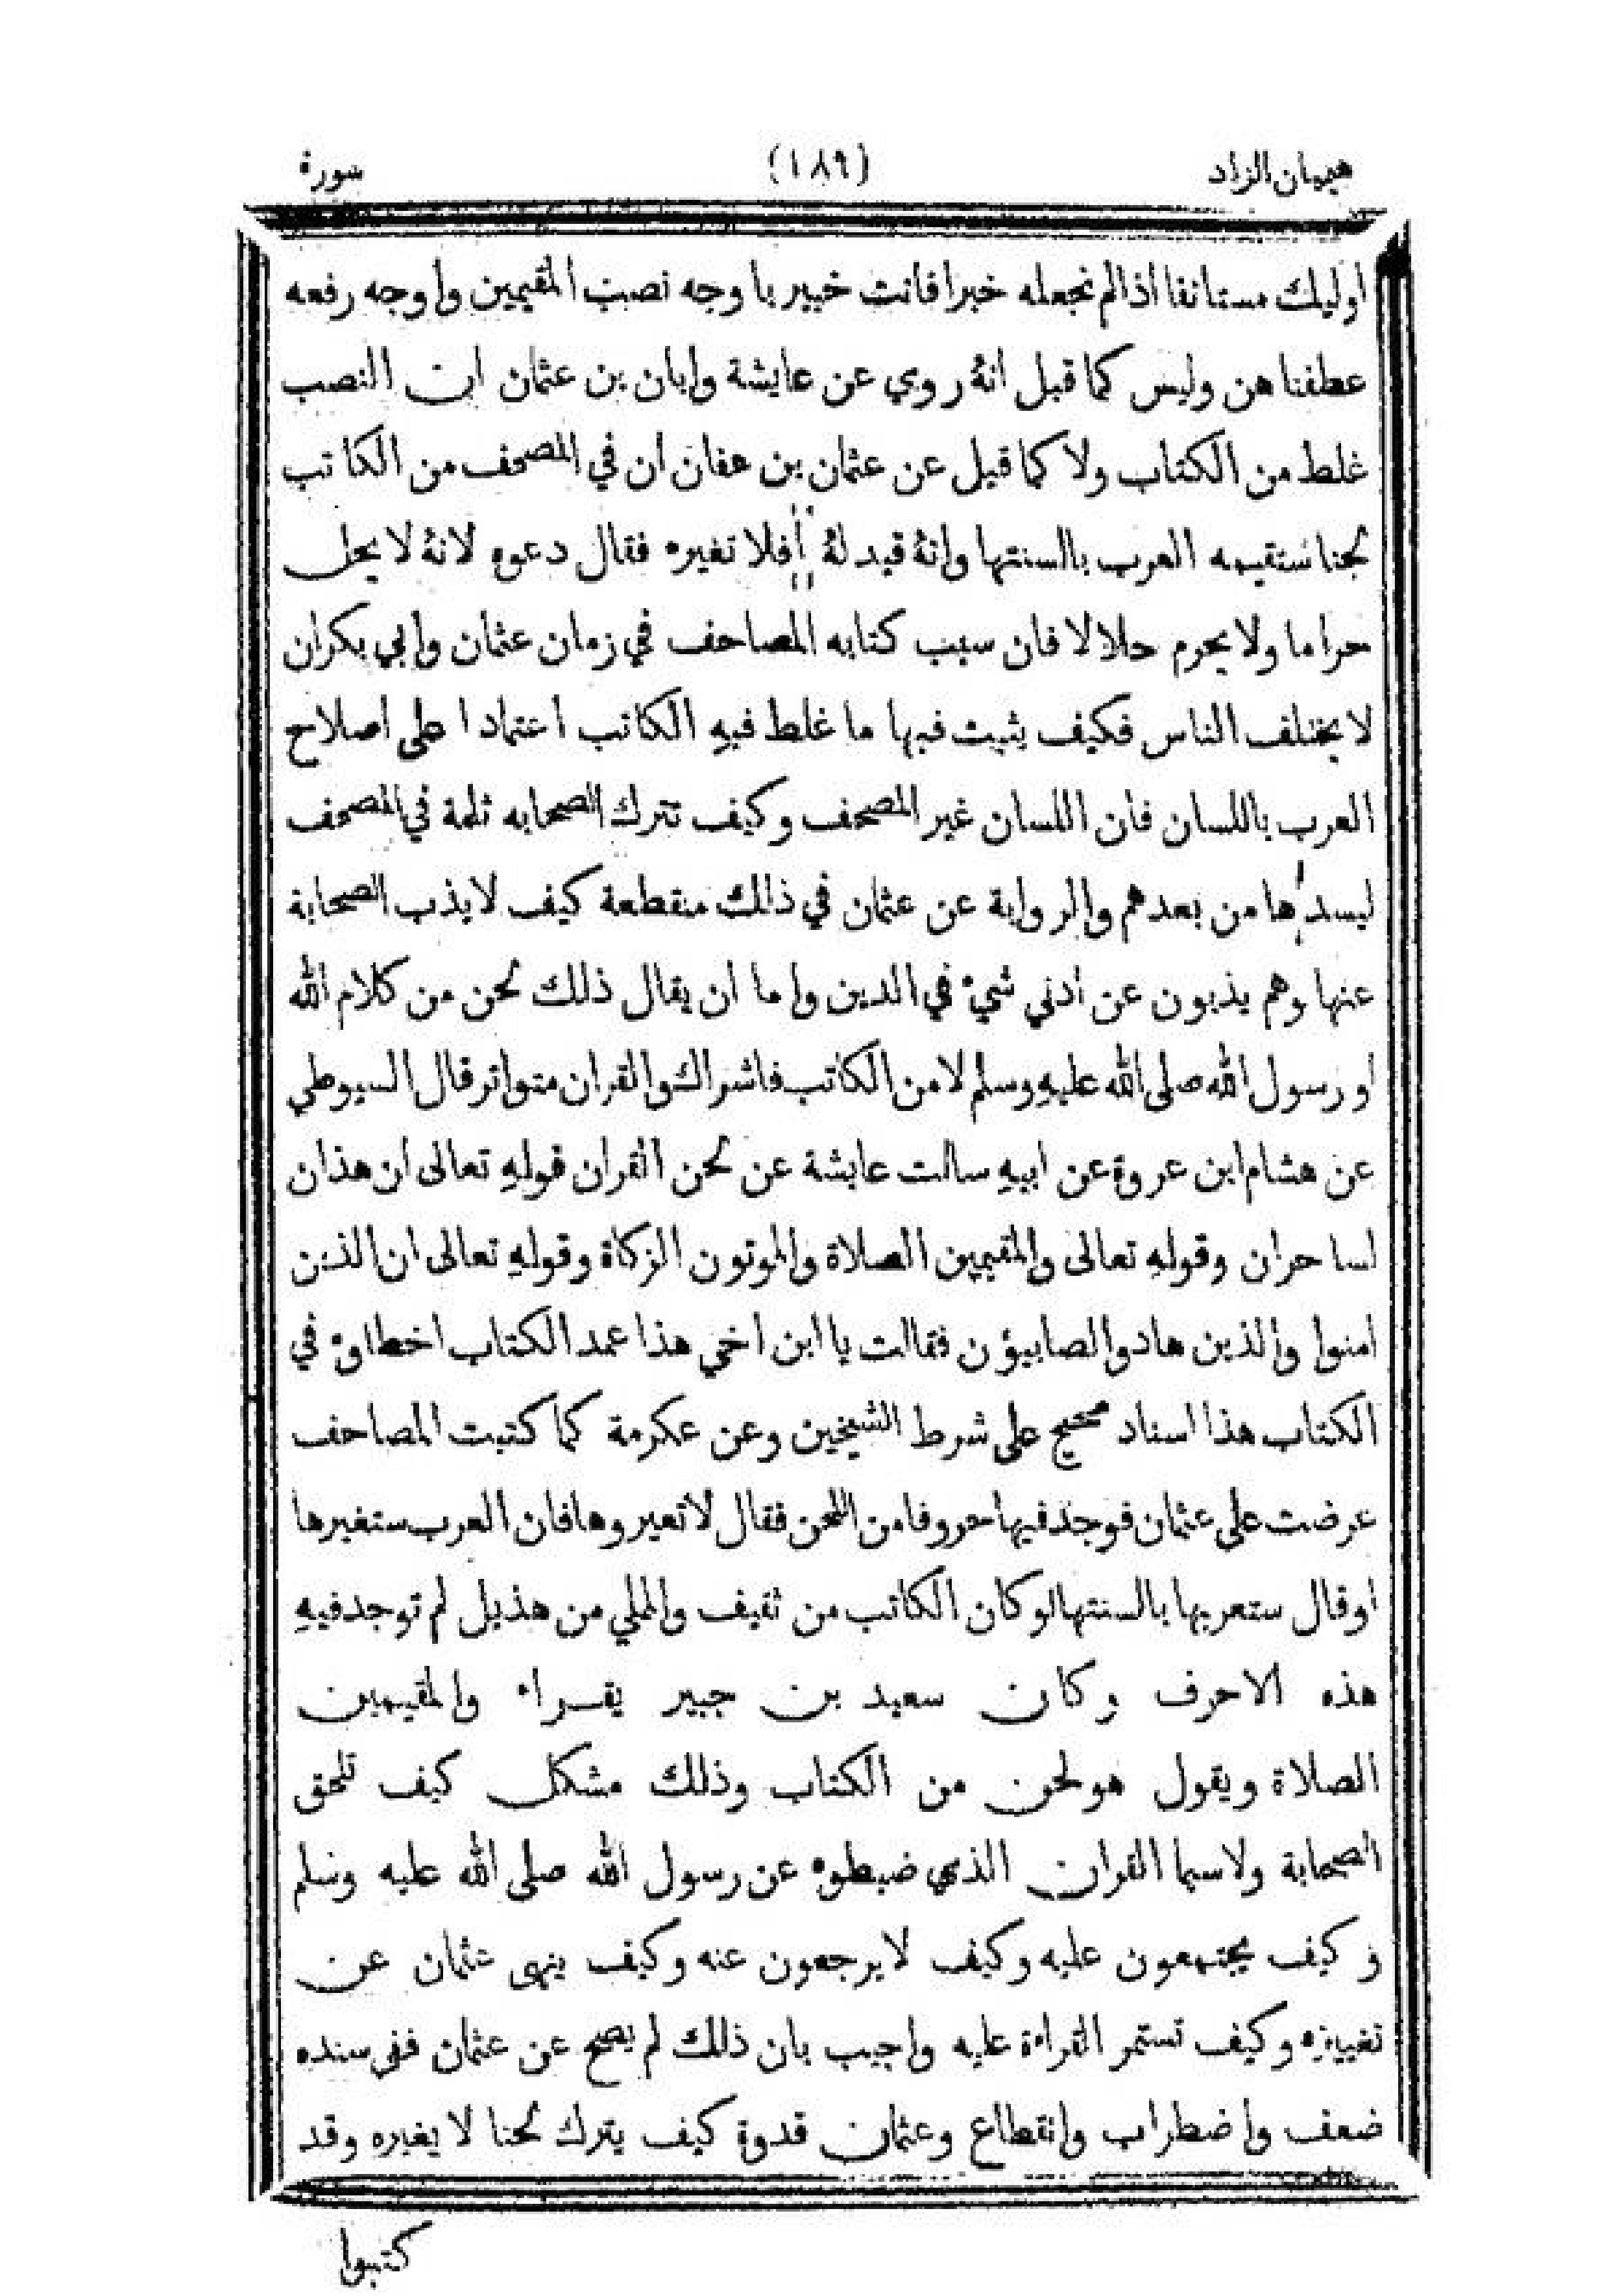 هيميان الزاد (١٨٩) سورة
اوليك مستانفا اذا لم نجعله خبرا فانت خبير باوجه نصب المقيمين واوجه رفعه
عطفنا هن وليس كما قيل انهُ روي عن عايشة وابان بن عثمان ان النصب
غلط من الكتاب ولا كما قيل عن عثمان بن عفان ان في المصحف من الكاتب
لحنا ستقيمه العرب بالسنتها وانهُ قيد لهُ أفلا تغيره فقال دعوه لانهُ لا يحل
حراما ولا يحرم حلالا فان سبب كتابه المصاحف في زمان عثمان وابي بكر ان
لا يختلف الناس فكيف يثبت فيها ما غلط فيهِ الكاتب اعتمادا على اصلاح
العرب باللسان فان اللسان غير المصحف وكيف تترك الصحابه ثلمة في المصحف
ليسدها من بعدهم والرواية عن عثمان في ذلك منقطعة كيف لا يذب الصحابة
عنها وهم يذبون عن أدني شيء في الدين واما ان يقال ذلك لحن من كلام الله
او رسول الله صلى الله عليهِ وسلم لا من الكاتب فاشراك والقران متواتر قال السيوطي
عن هشام ابن عروة عن ابيهِ سالت عايشة عن لحن القران قولهِ تعالى ان هذان
لساحران وقولهِ تعالى والمقيمين الصلاة والموتون الزكاة وقولهِ تعالى ان الذين
امنوا والذين هادوا الصابيؤن فقالت يا ابن اخي هذا عمد الكتاب اخطاؤ في
الكتاب هذا اسناد صحيح على شرط الشيخين وعن عكرمة كما كتبت المصاحف
عرضت على عثمان فوجد فيها حروفا من اللحن فقال لا تعيروها فان العرب ستغيرها
اوقال ستعربها بالسنتها لو كان الكاتب من ثقيف والملي من هذيل لم توجد فيهِ
هذه الاحرف وكان سعيد بن جبير يقراء والمقيمين
الصلاة ويقول هو لحن من الكتاب وذلك مشكل كيف تلحق
الصحابة ولاسيما القران الذي ضبطوه عن رسول الله صلى الله عليه وسلم
وكيف يجتمعون عليه وكيف لا يرجعون عنه وكيف ينهى عثمان عن
تغييره وكيف تستمر القراءة عليه واجيب بان ذلك لم يصح عن عثمان ففي سنده
ضعف واضطراب وانقطاع وعثمان قدوة كيف يترك لحنا لا يغيره وقد
كتبوا